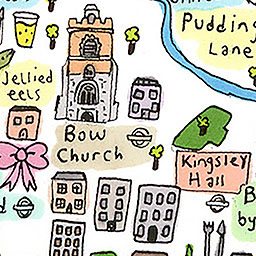 Pudding
Lane
Jellied
eels
Bow
Church
Kingsley
Hall
B
by
d